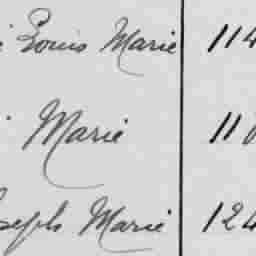 Louis Marie 114
Marie 11
Joseph Marie 124